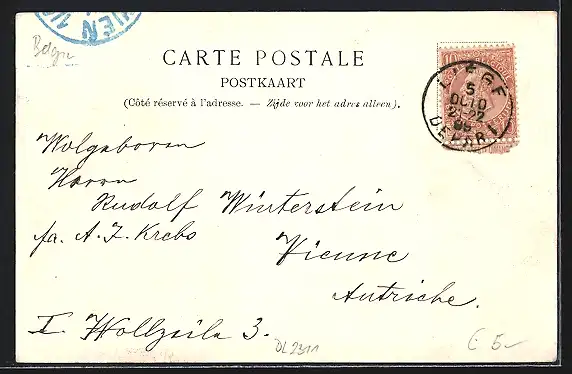 WIEN 1/1
Belgien
CARTE POSTALE
POSTKAART
(Côté réservé à l'adresse. — Zijde voor het adres alleen).
10
LIÈGE
5
OCTO
21-22
99
DÉPART
Wolgeboren
Herrn
Rudolf Winterstein
fa. A. J. Krebs
Vienne
Autriche.
I. Wollzeile 3.
DL2311
€ 5-